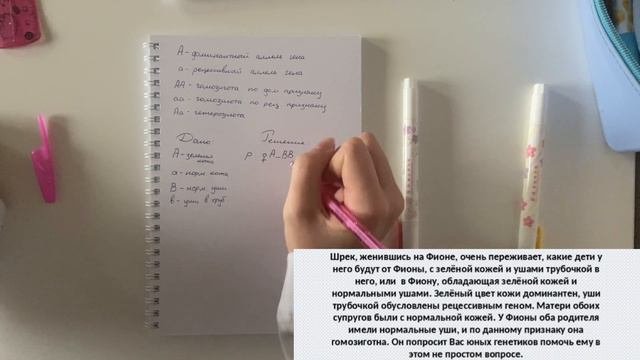 А - доминантный аллель гена
а - рецессивный аллель гена
АА - гомозигота по дом признаку
аа - гомозигота по рец. признаку
Аа - гетерозигота
Дано: Решение
А - зелёная кожа
Р ♀ А_ВВ
а - норм. кожа
В - норм. уши
в - уши в труб
Шрек, женившись на Фионе, очень переживает, какие дети у
него будут от Фионы, с зелёной кожей и ушами трубочкой в
него, или в Фиону, обладающая зелёной кожей и
нормальными ушами. Зелёный цвет кожи доминантен, уши
трубочкой обусловлены рецессивным геном. Матери обоих
супругов были с нормальной кожей. У Фионы оба родителя
имели нормальные уши, и по данному признаку она
гомозиготна. Он попросит Вас юных генетиков помочь ему в
этом не простом вопросе.